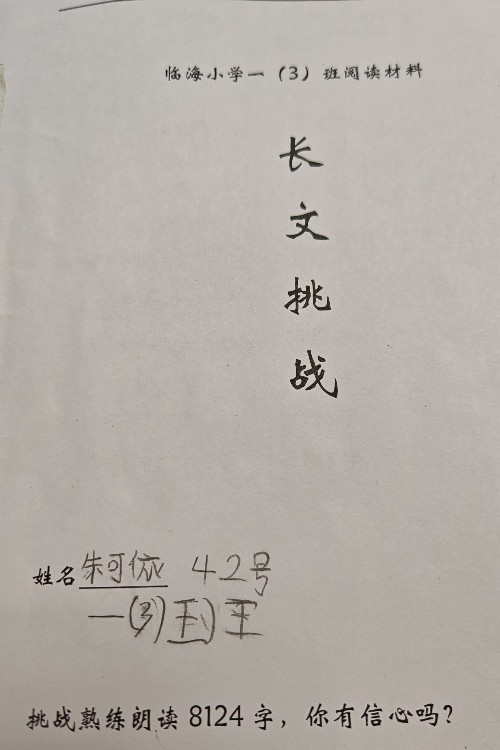 临海小学一（3）班阅读材料
长
文
挑
战
姓名朱可依 42号
一(3)
挑战熟练朗读 8124 字，你有信心吗？